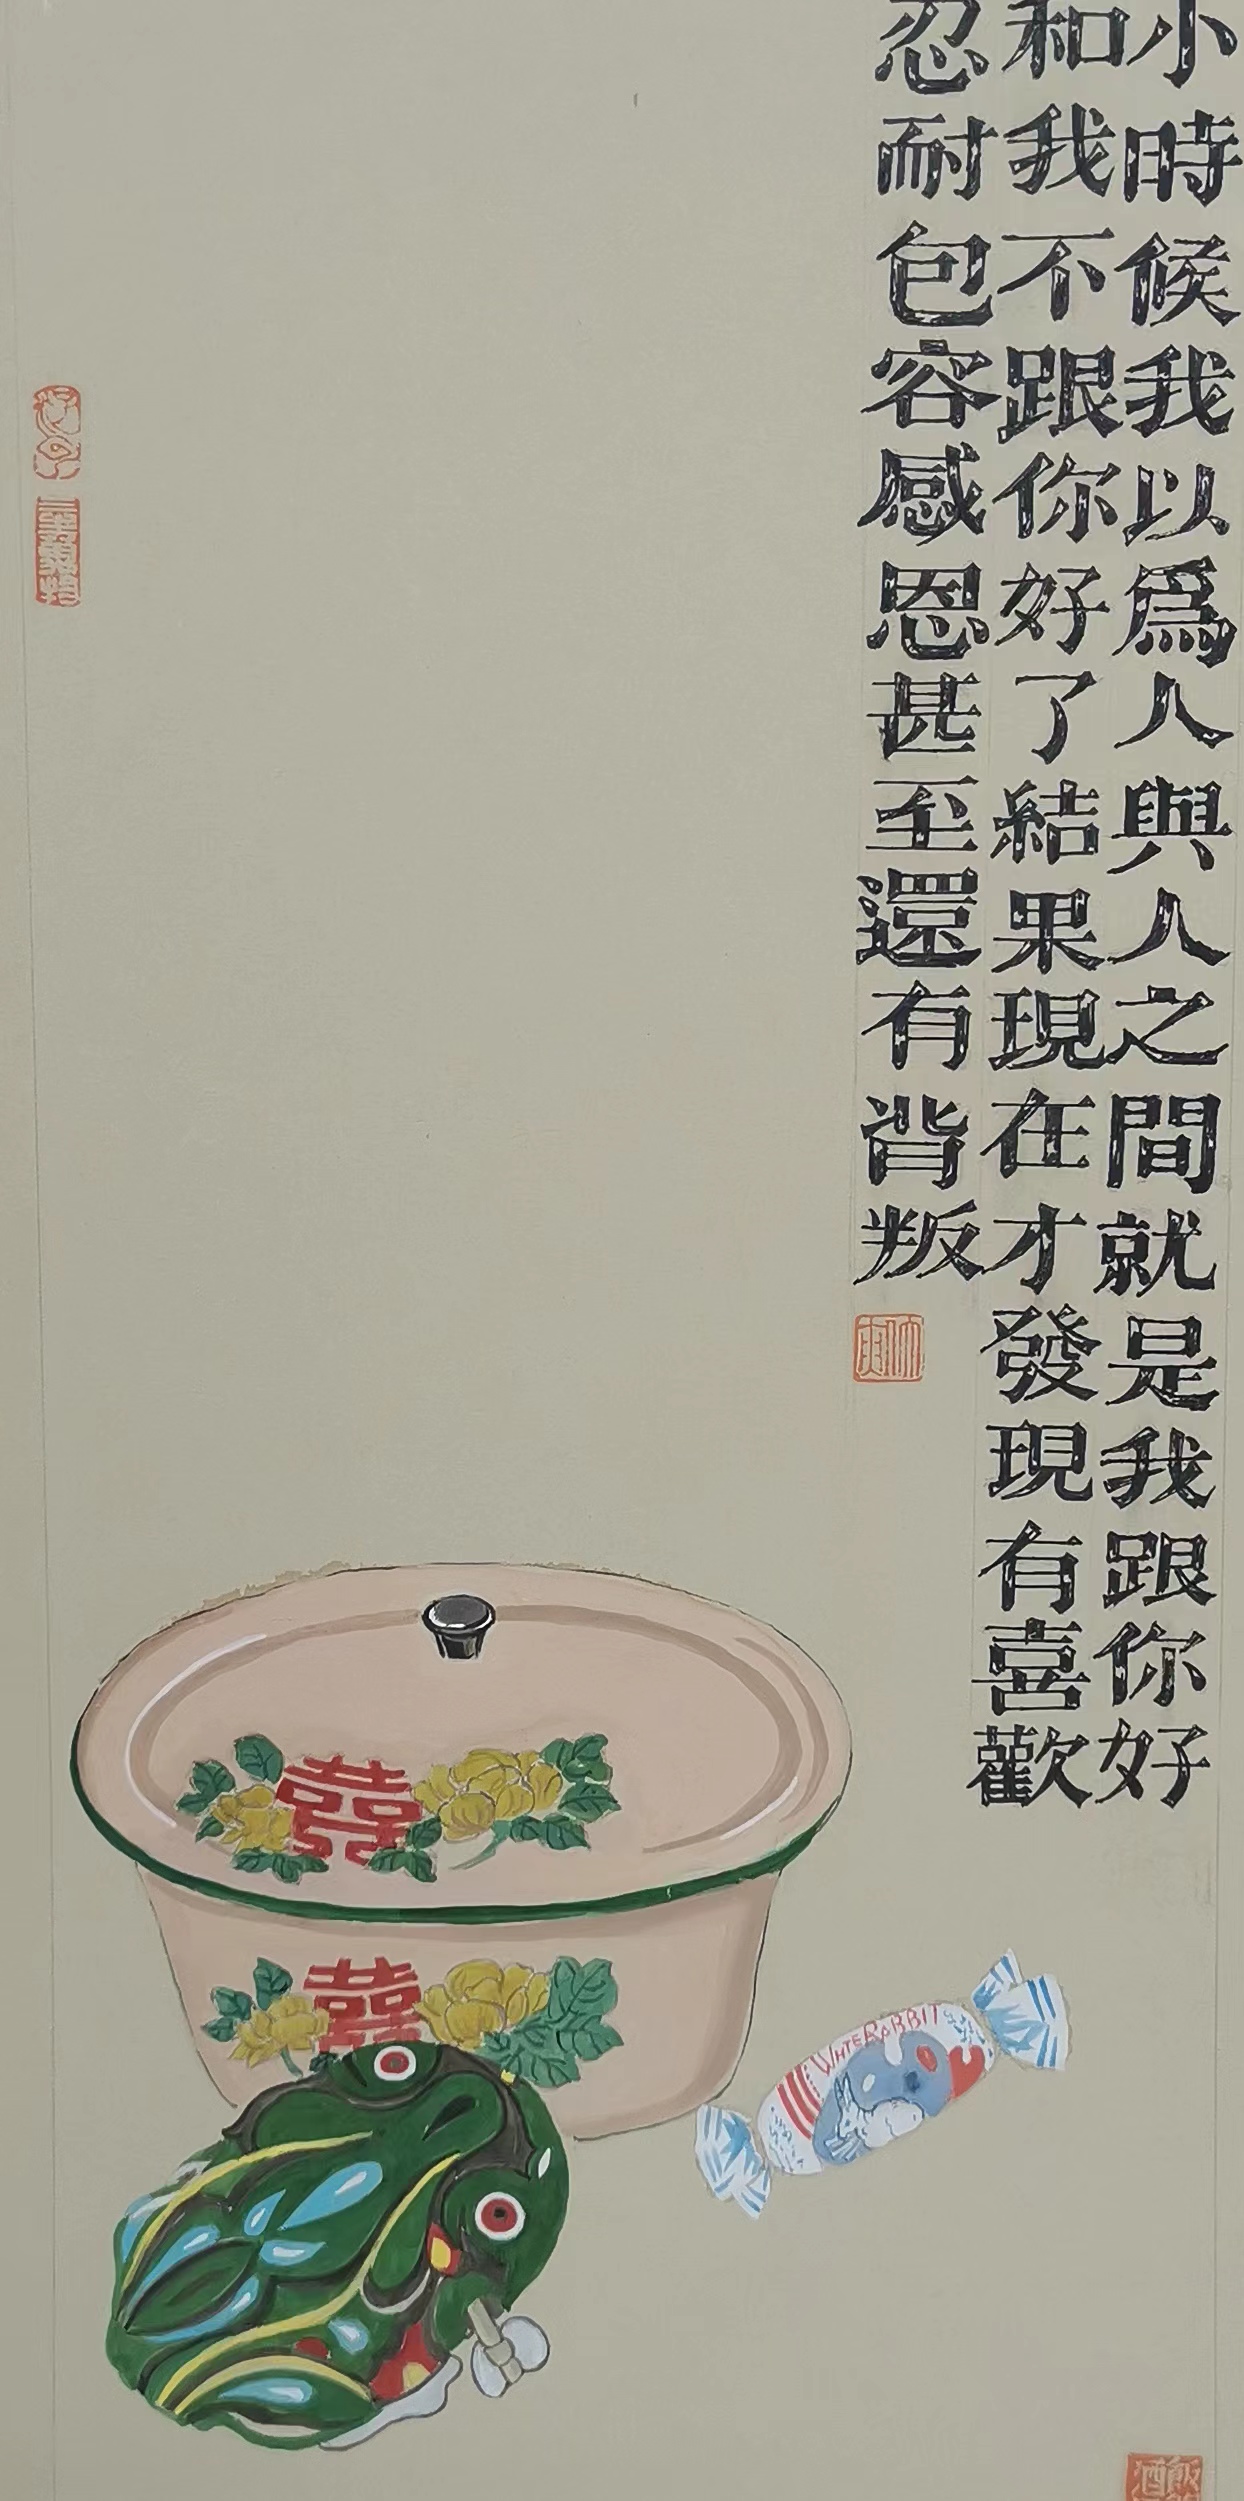 小時候我以爲人與人之間就是我跟你好
和我不跟你好了結果現在才發現有喜歡
忍耐包容感恩甚至還有背叛
囍
囍
WHITE RABBIT